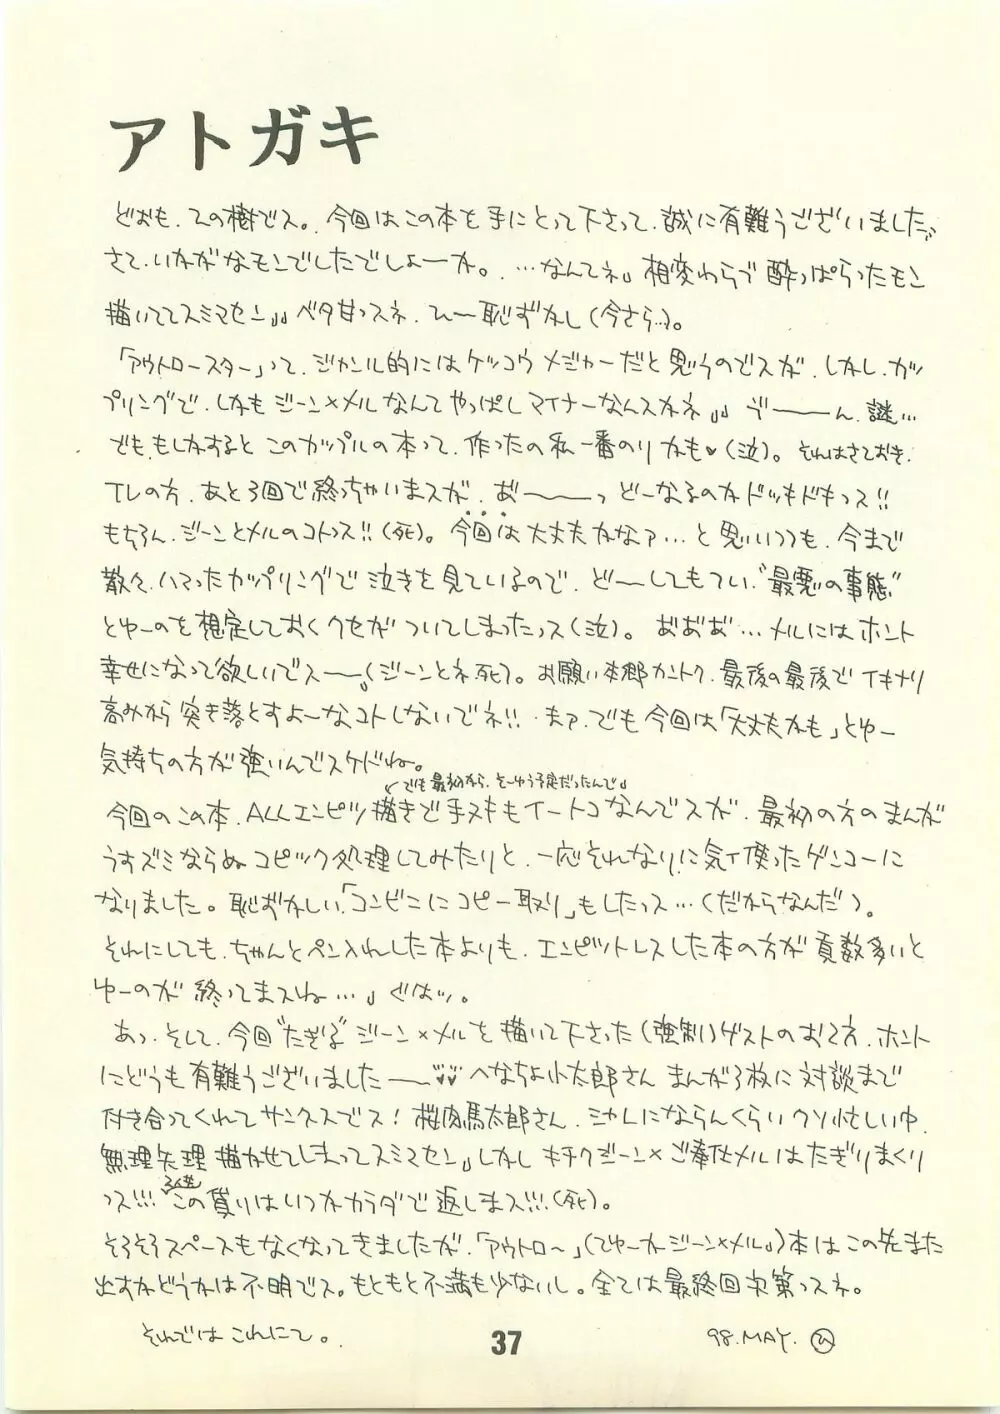 アトガキ
どおも、ひの樹でス。今回はこの本を手にとって下さって、誠に有難うございました。
さて、いかがなモンでしたでしょーか。…なんてネ。相変わらず酔っぱらったモン
描いててスミマセン。ベタ甘っスネ、ひ〜恥ずかし(今さら…)。
「アウトロースター」って、ジャンル的にはケッコウメジャーだと思うのでスが、しかし、カッ
プリングで、しかもジーン×メルなんてやっぱしマイナーなんスかネ。ゔーーん、謎…
でも、もしかすると このカップルの本って、作ったの私一番のりかも♥(泣)。それはさておき、
TVの方、あと3回で終っちゃいまスが、お゙ーーーっ どーなるのかドッキドキっス!!
もちろん、ジーンとメルのコトっス!!(死)。今回は大丈夫かなァ…と思いつつも、今まで
散々、ハマったカップリングで泣きを見ているので、どーしてもつい、“最悪の事態”
とゆーのを想定しておくクセがついてしまったっス(泣)。お゙お゙お゙…メルにはホント
幸せになって欲しいでスーー(ジーンとネ、死)。お願い本郷カントク、最後の最後でイキナリ
高みから突き落とすよーなコトしないでネ!! まァ、でも今回は「大丈夫かも」とゆー
気持ちの方が強いんでスケドね。
でも最初から、そーゆう予定だったんで
今回のこの本、ALLエンピツ描きで手ヌキもイートコなんでスが、最初の方のまんが
うすズミならぬコピック処理してみたりと、一応それなりに気イ使ったゲンコーに
なりました。恥ずかしい「コンビニにコピー取り」もしたっス…(だからなんだ)。
それにしても、ちゃんとペン入れした本よりも、エンピツトレスした本の方が頁数多いと
ゆーのが 終ってまスね…。ぐはッ。
あっ、そして、今回“たぎる”ジーン×メルを描いて下さった(強制)ゲストのお2方、ホント
にどうも有難うございましたーー♥♥ へなちょ小太郎さん まんが3枚に対談まで
付き合ってくれてサンクスでス! 桜肉馬太郎さん、シャレにならんくらいクソ忙しい中、
無理矢理描かせてしまってスミマセン。しかし キチクジーン×ご奉仕メルはたぎりまくり
っス!!! この借りはいつかカラダで返しまス!!!(死)。
そろそろスペースもなくなってきましたが、「アウトロ〜」(てゆーかジーン×メル)本はこの先また
出すかどうかは不明でス。もともと不満も少ないし。全ては最終回次第っスネ。
それでは これにて。
37
98.MAY. ひ